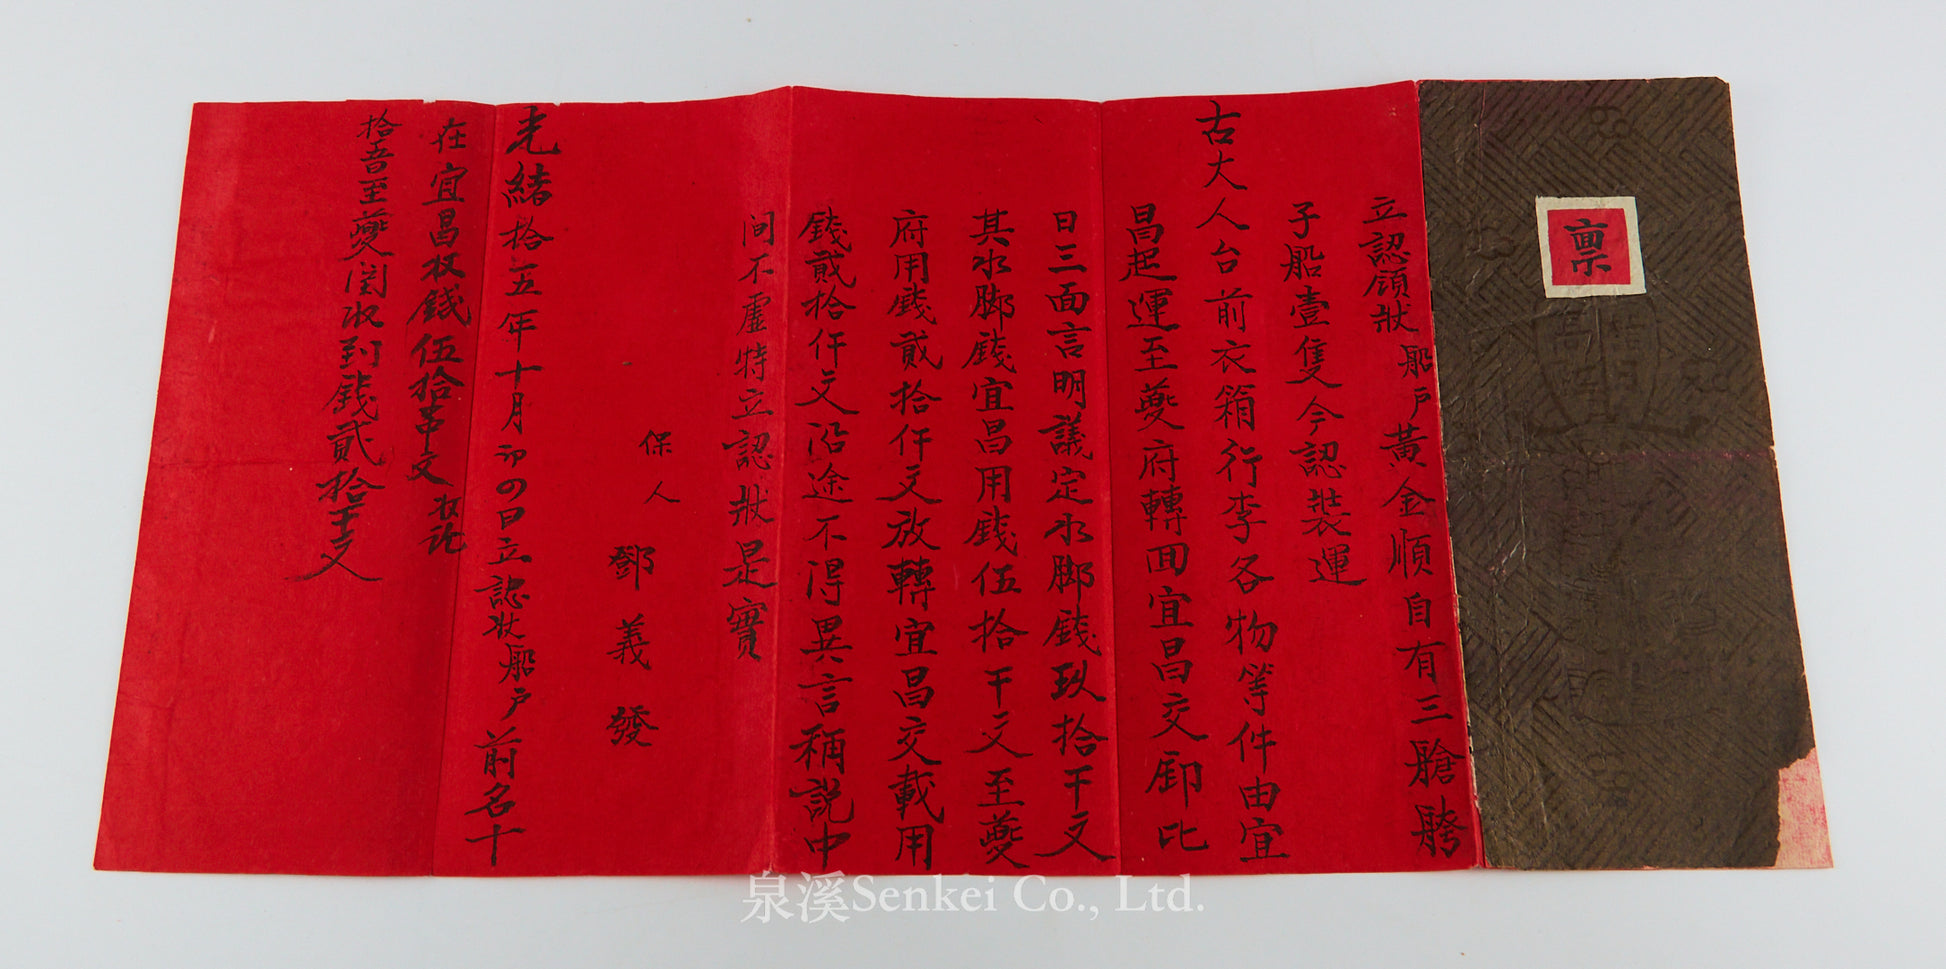 稟
立認領狀船戶黃金順自有三艙䑨
子船壹隻今認裝運
古大人台前衣箱行李各物等件由宜
昌起運至夔府轉囬宜昌交卸比
日三面言明議定水腳錢玖拾千文
其水腳錢宜昌用錢伍拾千文至夔
府用錢貳拾仟文放轉宜昌交載用
錢貳拾仟文沿途不得異言稱說中
间不虛特立認狀是實
保人 鄧義發
光緒拾五年十月初四日立認狀船戶前名十
在宜昌收錢伍拾串文 收訖
拾吾至夔関收到錢貳拾千文
泉溪Senkei Co., Ltd.